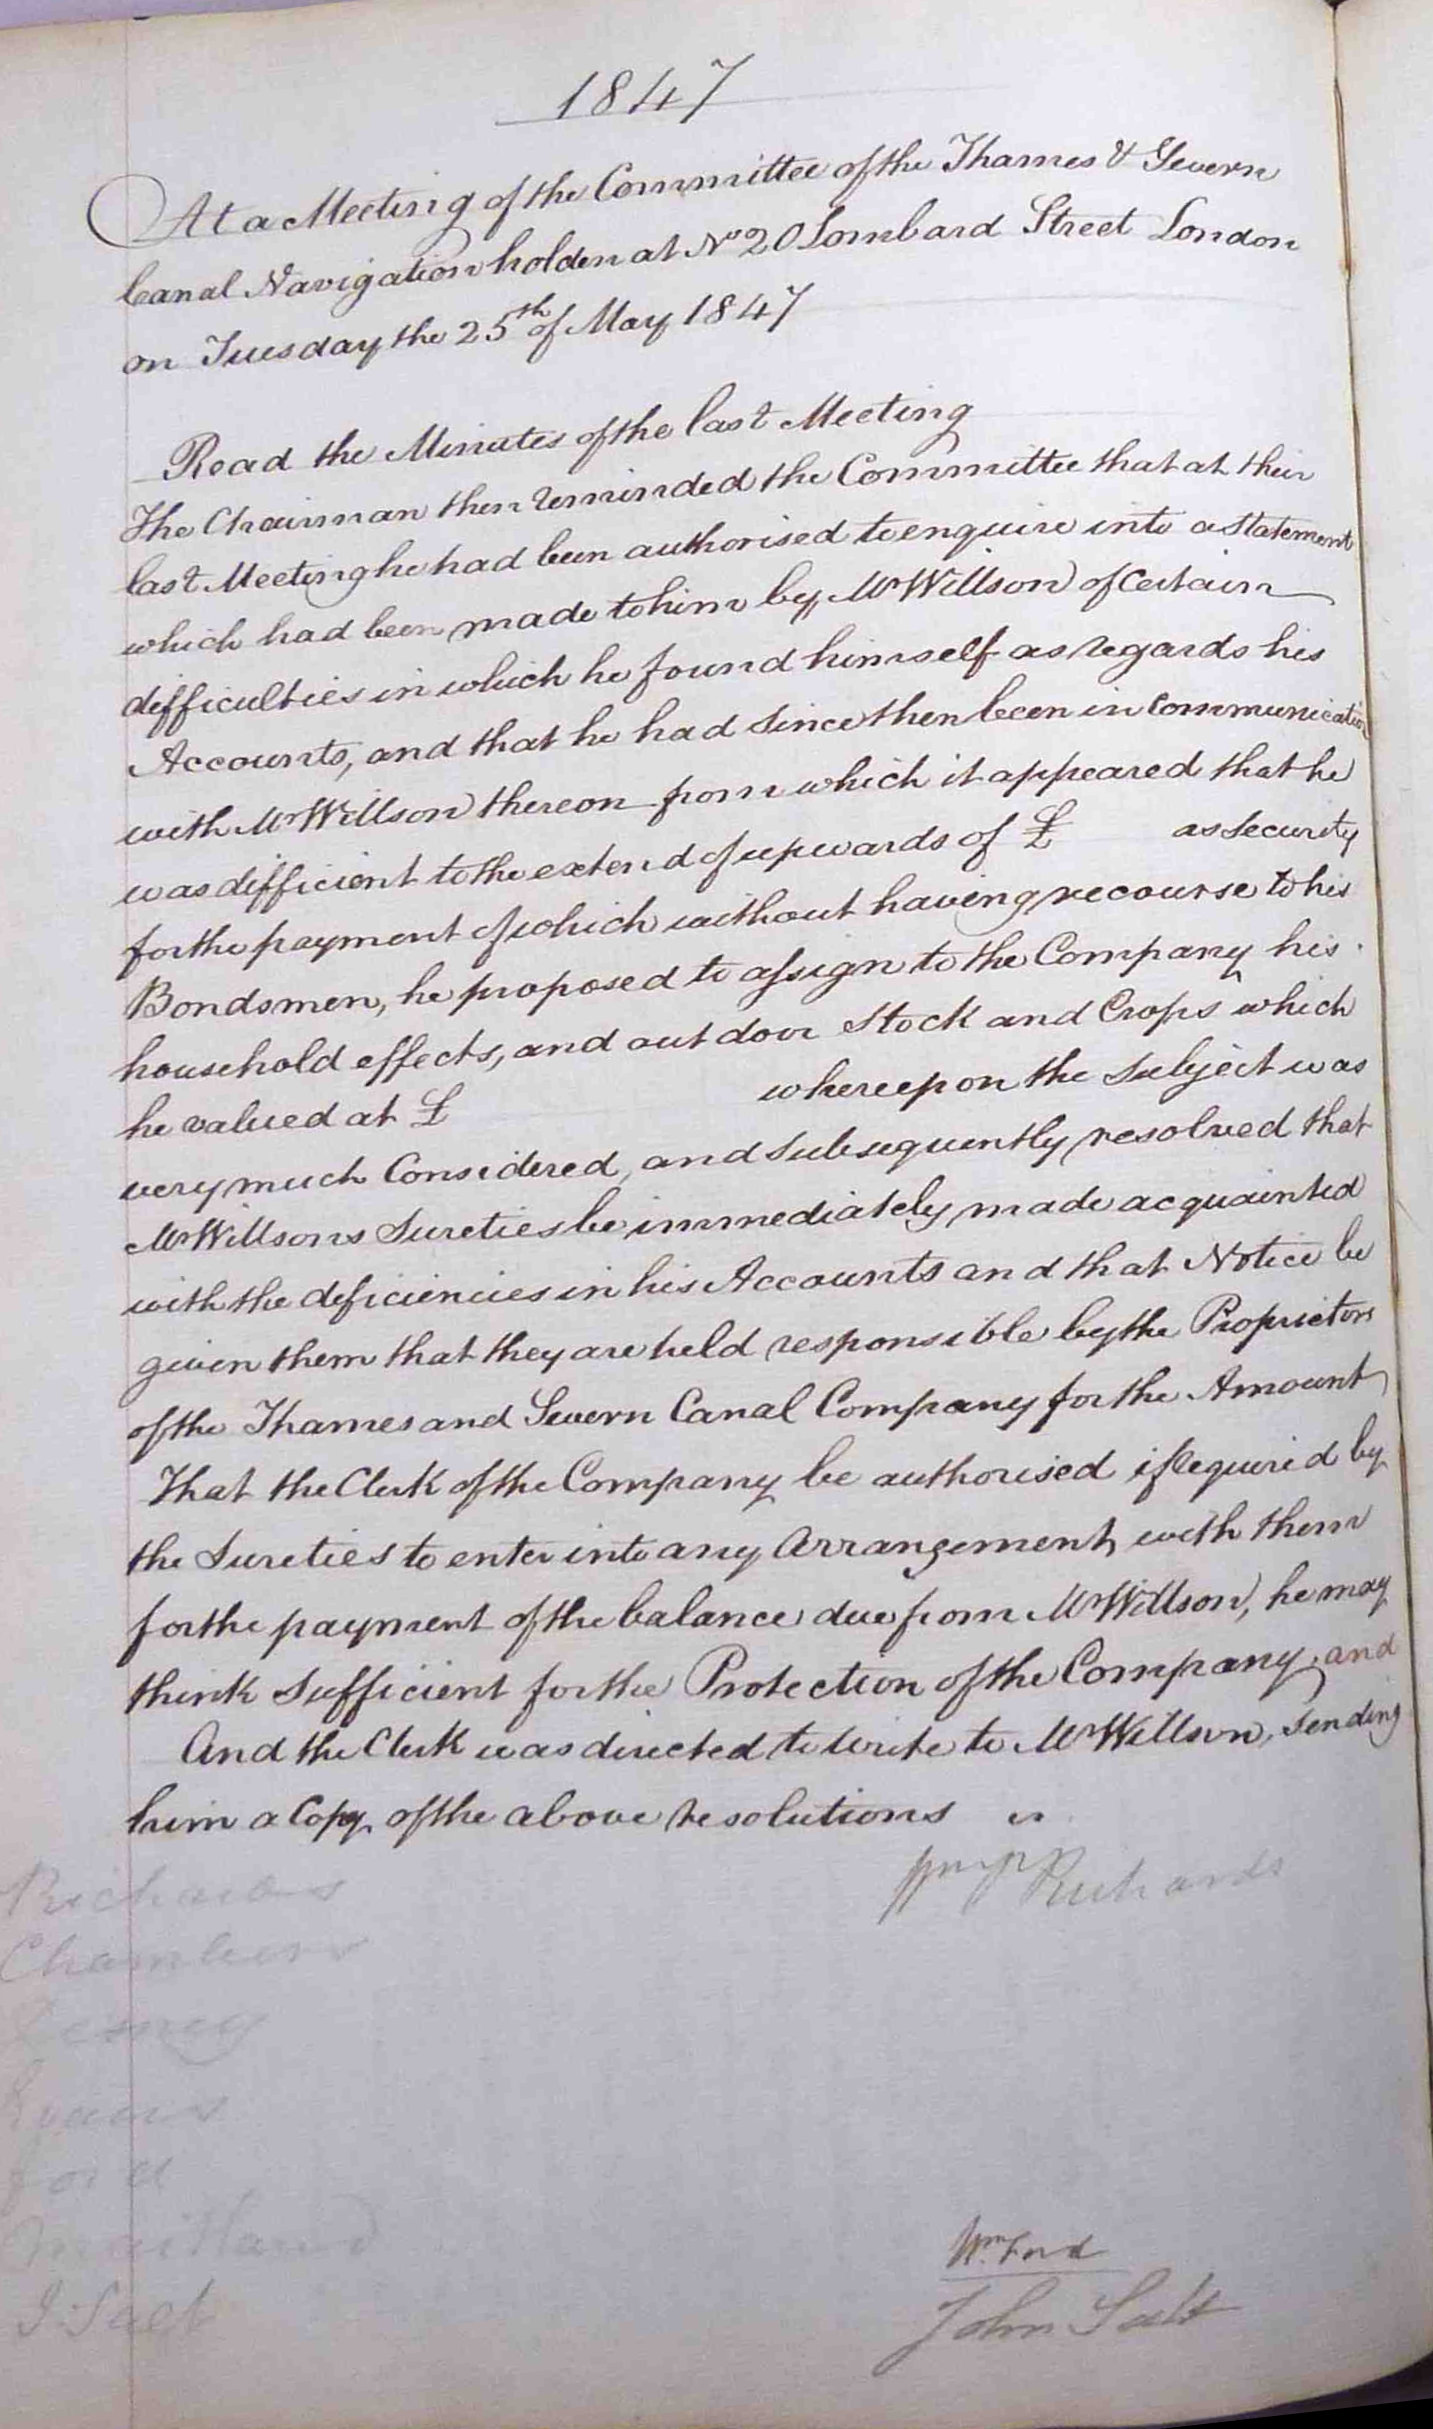 1847
At a Meeting of the Committee of the Thames & Severn
Canal Navigation holden at No 20 Lombard Street London
on Tuesday the 25th of May 1847
Read the Minutes of the last Meeting
The Chairman then reminded the Committee that at their
last Meeting he had been authorised to enquire into a Statement
which had been made to him by Mr Willson of Certain
difficulties in which he found himself as regards his
Accounts, and that he had since then been in Communication
with Mr Willson thereon from which it appeared that he
was difficient to the extend of upwards of £ as Security
for the payment of which without having recourse to his
Bondsmen, he proposed to assign to the Company his
household effects, and out door Stock and Crops ^ which
he valued at £ whereupon the Subject was
very much Considered, and Subsequently resolved that
Mr Willsons Sureties be immediately made acquainted
with the deficiencies in his Accounts and that Notice be
given them that they are held responsible by the Proprietors
of the Thames and Severn Canal Company for the Amount
That the Clerk of the Company be authorised if Required by
the Sureties to enter into any Arrangement with them
for the payment of the balance due from Mr Willson, he may
think Sufficient for the Protection of the Company, and
And the Clerk was directed to write to Mr Willson, Sending
him a Copy of the above resolutions
Richards
Richards
Chambers
Evans
Ford
Maitland
J. Salt
Wm. Ford
John Salt